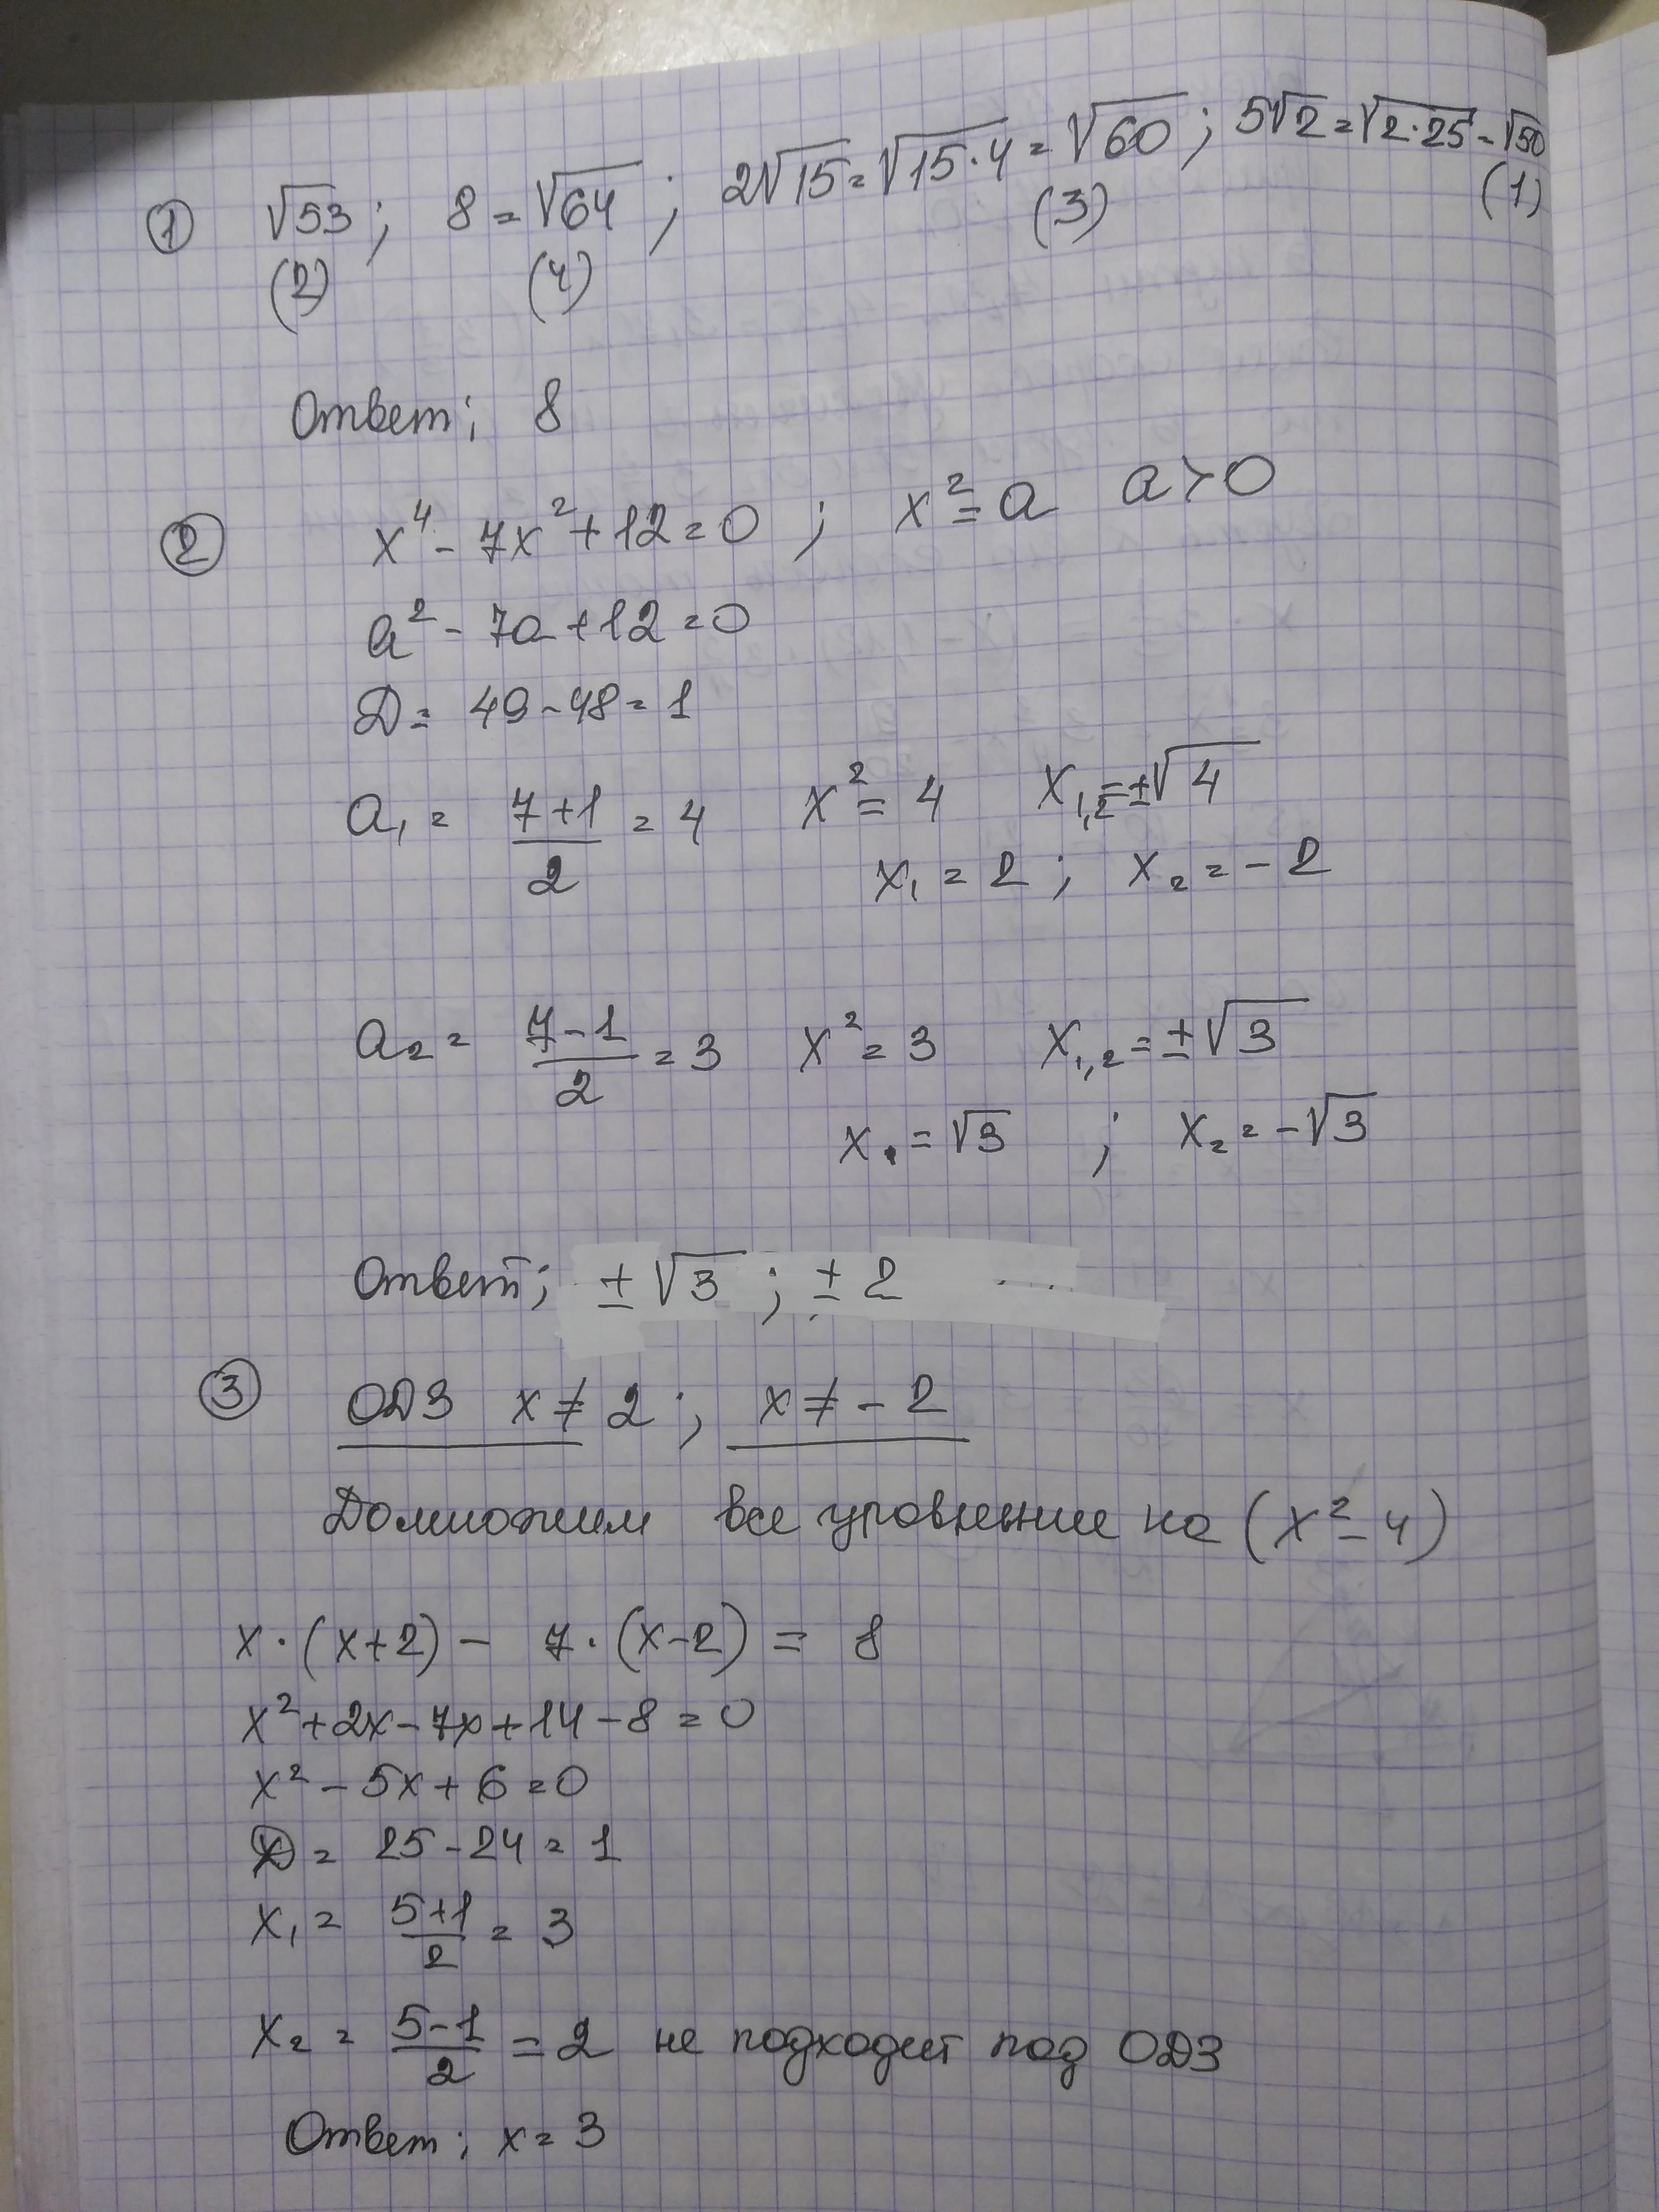 ① √53 ; 8 = √64 ; 2√15 = √15·4 = √60 ; 5√2 = √2·25 = √50
(2) (4) (3) (1)
Ответ; 8
② x⁴ - 7x² + 12 = 0 ; x² = a a > 0
a² - 7a + 12 = 0
D = 49 - 48 = 1
a₁ = (7+1)/2 = 4 x² = 4 x₁,₂ = ±√4
x₁ = 2 ; x₂ = -2
a₂ = (7-1)/2 = 3 x² = 3 x₁,₂ = ±√3
x₁ = √3 ; x₂ = -√3
Ответ; ±√3 ; ±2
③ ОДЗ x ≠ 2 ; x ≠ -2
Домножим все уровнение на (x² - 4)
x·(x+2) - 7·(x-2) = 8
x² + 2x - 7x + 14 - 8 = 0
x² - 5x + 6 = 0
D = 25 - 24 = 1
x₁ = (5+1)/2 = 3
x₂ = (5-1)/2 = 2 не подходит под ОДЗ
Ответ; x = 3